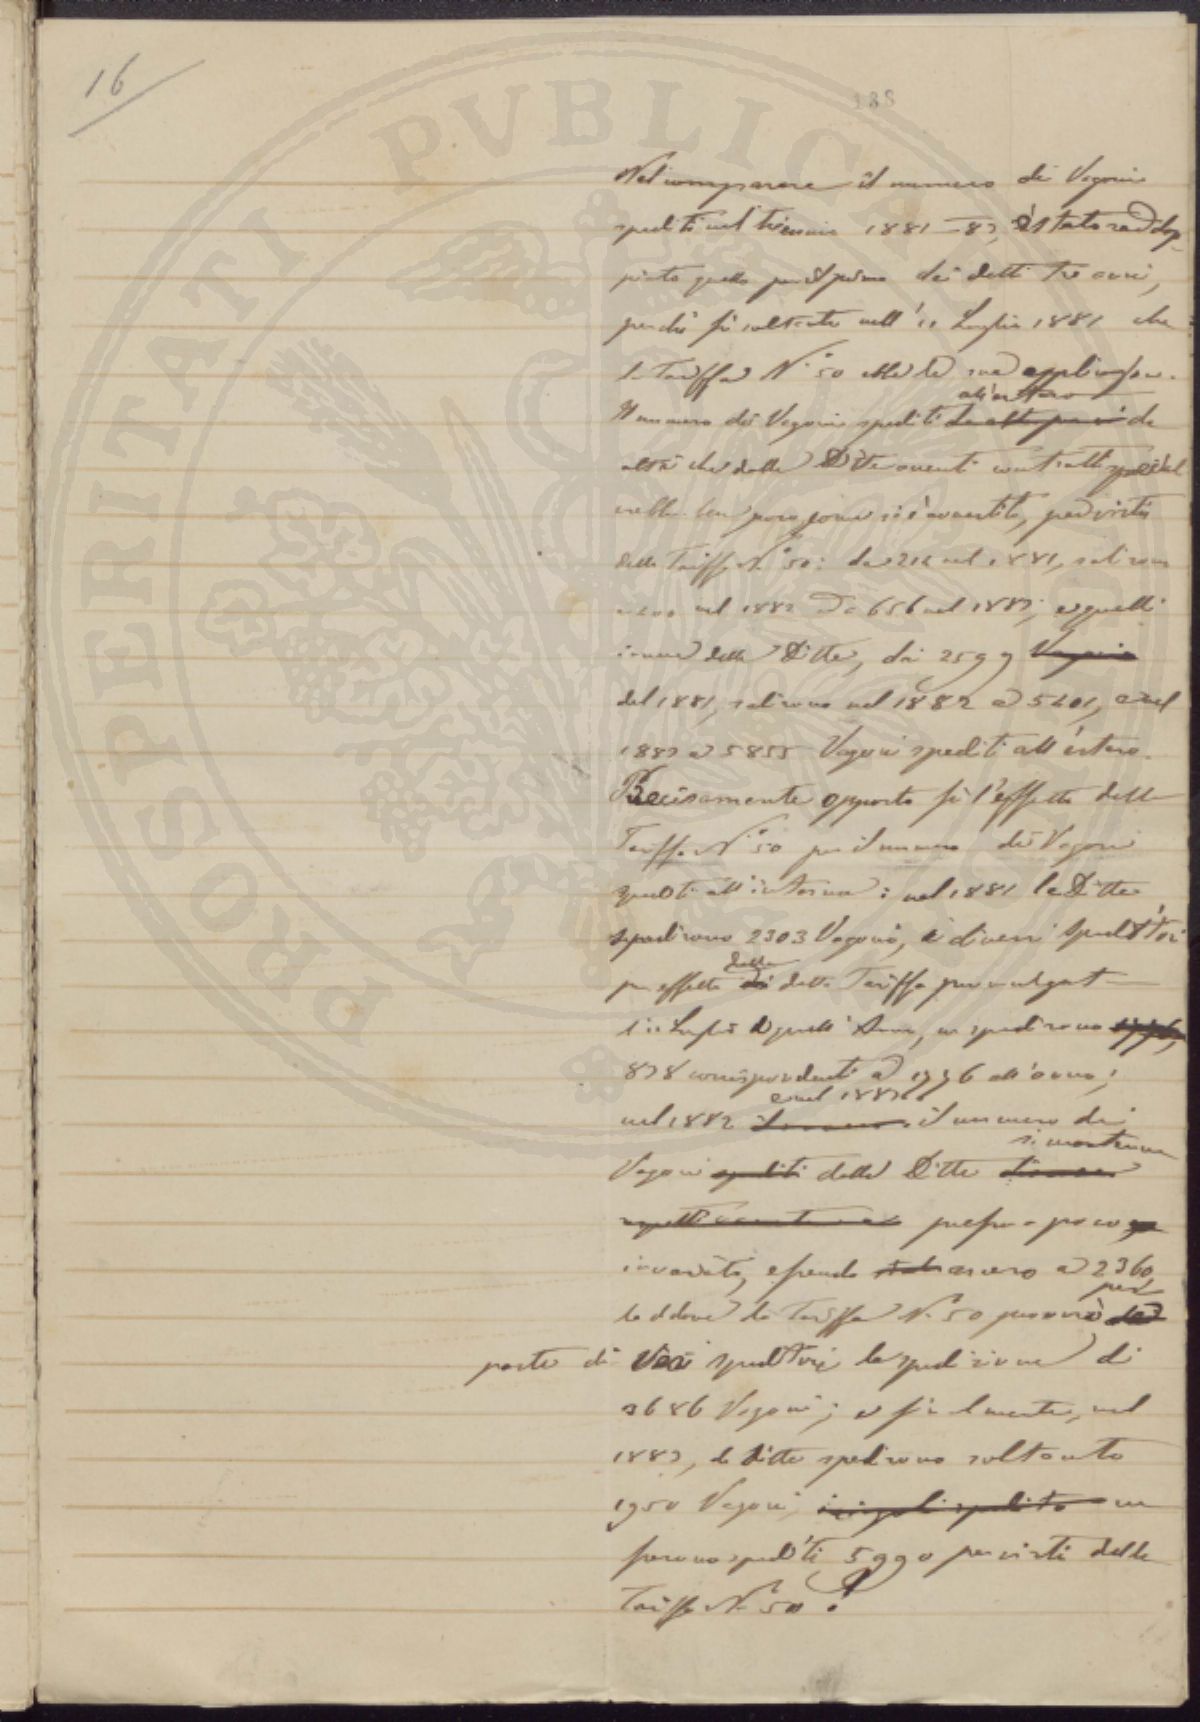 16
188
PROSPERITATI PVBLICAE
Nel comparare il numero di Vagoni
spediti nel triennio 1881-83, è stato raddop-
piato quello pel primo dei detti tre anni,
perchè fu soltanto nell' 11 Luglio 1881 che
la Tariffa N.° 50 ebbe la sua
all'estero
Il numero dei Vagoni spediti da
altri che dalle Ditte aventi contratti speciali
nella come si è avvertito, per virtù
della Tariffa N.° 50: da 212 nel 1881, salirono
nel 1882 ed a 656 nel 1883; e quelli
invece delle Ditte, dai 2599 Vagoni
del 1881, salirono nel 1882 a 5401, e nel
1883 a 5855 Vagoni spediti all'estero.
Precisamente opposto fu l'effetto della
Tariffa N.° 50 per il numero di Vagoni
spediti all'interno: nel 1881 le Ditte
spedirono 2303 Vagoni, i diversi speditori
della
per effetto di detta Tariffa promulgata
l'11 Luglio di quell'Anno, ne spedirono
878 corrispondenti a 1756 all'anno;
e nel 1883
nel 1882 il numero dei
si mantenne
Vagoni spediti delle Ditte
presso a poco
invariato, essendo asceso a 2360,
per
laddove la Tariffa N.° 50 procurò da
parte di vari speditori la spedizione di
3686 Vagoni; e finalmente, nel
1883, le Ditte spedirono soltanto
1950 Vagoni, ne
furono spediti 5990 per virtù della
Tariffa N.° 50.